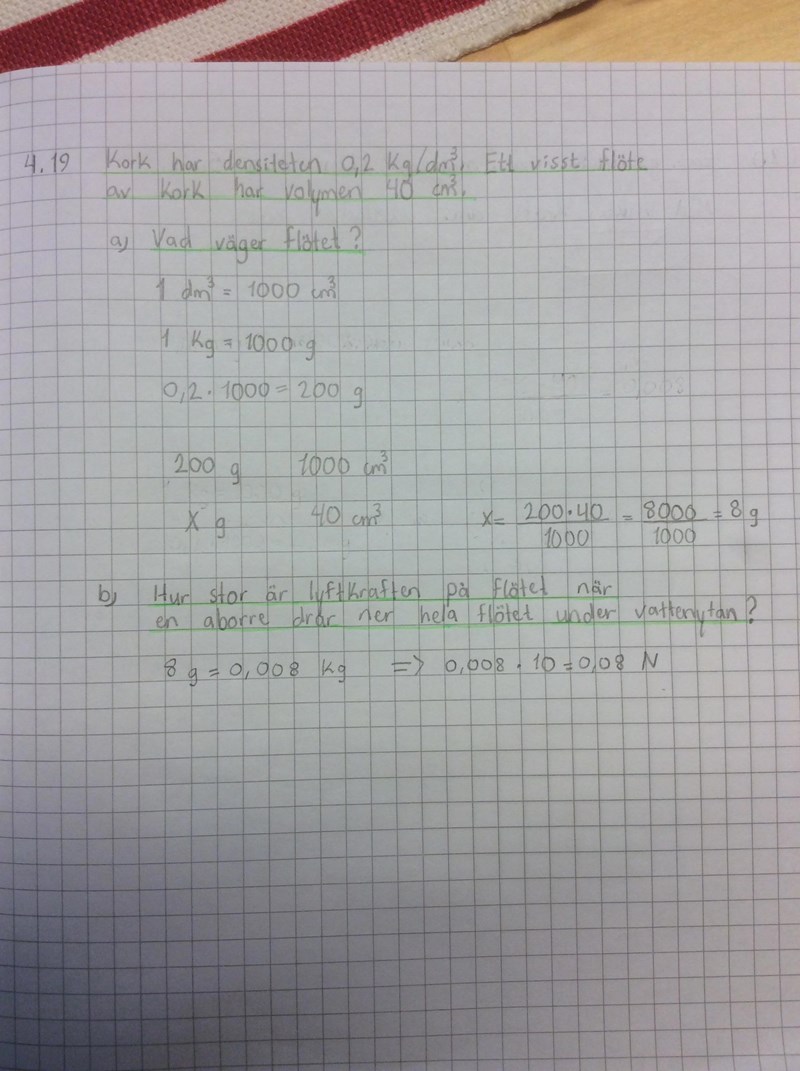 4.19 Kork har densiteten 0,2 Kg/dm³. Ett visst flöte
av kork har volymen 40 cm³.
a) Vad väger flötet?
1 dm³ = 1000 cm³
1 Kg = 1000 g
0,2 · 1000 = 200 g
200 g 1000 cm³
X g 40 cm³ x = 200·40/1000 = 8000/1000 = 8 g
b) Hur stor är lyftkraften på flötet när
en aborre drar ner hela flötet under vattenytan?
8 g = 0,008 Kg => 0,008 · 10 = 0,08 N